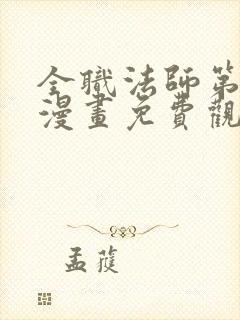 全職法師第
漫畫免費觀
孟蓰